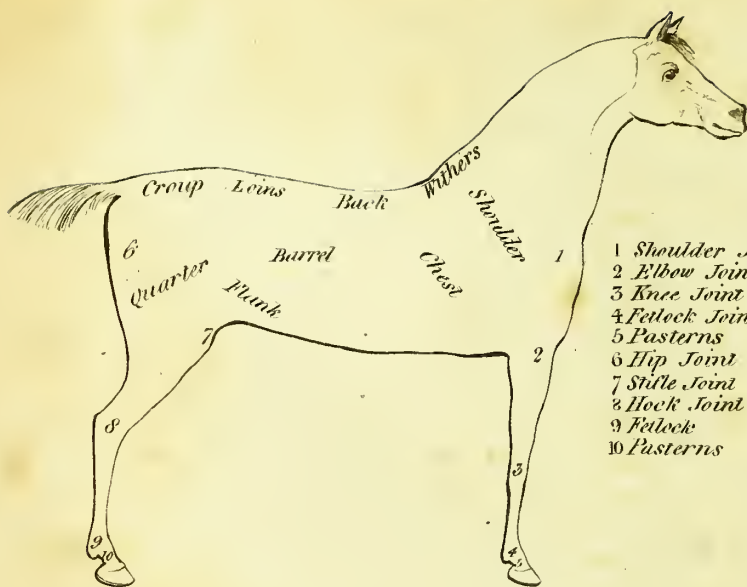 Croup Loins Back Withers
Shoulder
6 Barrel Chest 1
Quarter Flank
7 2
8
3
9 10 4 5
1 Shoulder J
2 Elbow Join
3 Knee Joint
4 Fetlock Join
5 Pasterns
6 Hip Joint
7 Stifle Joint
8 Hock Joint
9 Fetlock
10 Pasterns